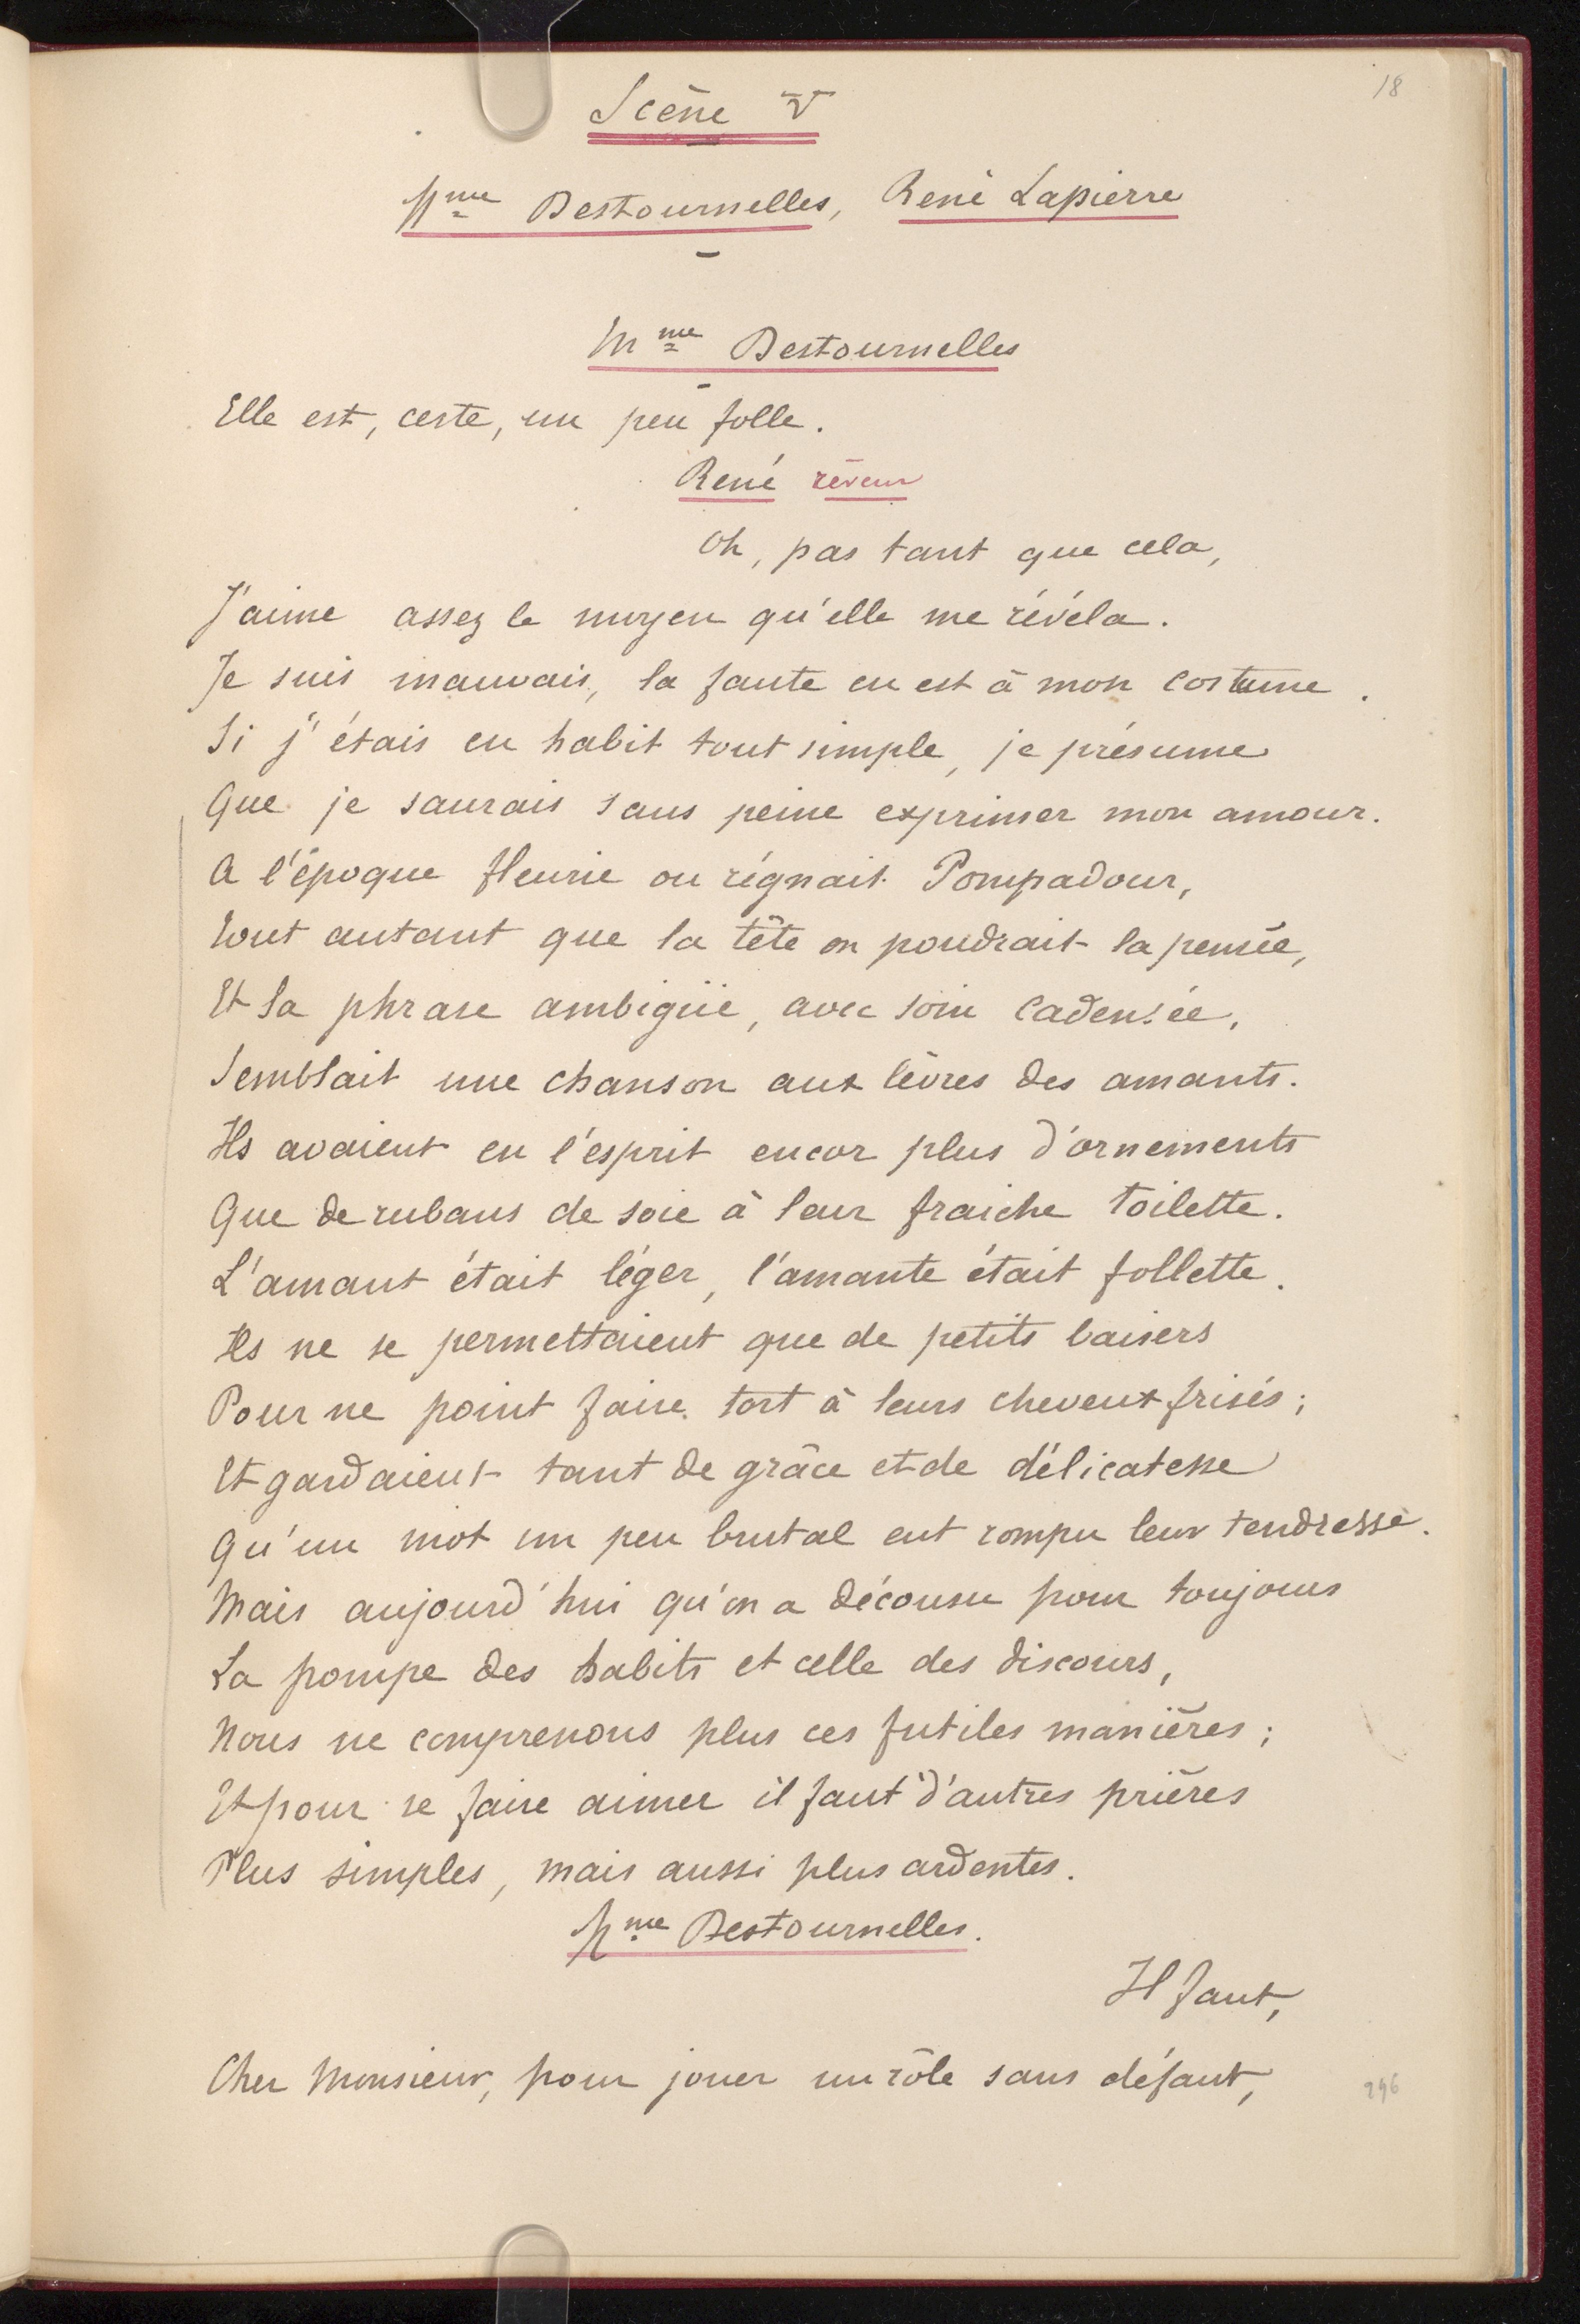 18
Scène V
Mme Destournelles, René Lapierre
Mme Destournelles
Elle est, certe, un peu folle.
René rêveur
Oh, pas tant que cela,
J'aime assez le moyen qu'elle me révéla.
Je suis mauvais, la faute en est à mon costume.
Si j'étais en habit tout simple, je présume
Que je saurais sans peine exprimer mon amour.
A l'époque fleurie ou régnait Pompadour,
Tout autant que la tête on poudrait la pensée,
Et la phrase ambigüe, avec soin cadensée,
Semblait une chanson aux lèvres des amants.
Ils avaient en l'esprit encor plus d'ornements
Que de rubans de soie à leur fraiche toilette.
L'amant était léger, l'amante était follette.
Ils ne se permettaient que de petits baisers
Pour ne point faire tort à leurs cheveux frisés;
Et gardaient tant de grâce et de délicatesse
Qu'un mot un peu brutal eut rompu leur tendresse.
Mais aujourd'hui qu'on a décousu pour toujours
La pompe des habits et celle des discours,
Nous ne comprenons plus ces futiles manières;
Et pour se faire aimer il faut d'autres prières
Plus simples, mais aussi plus ardentes.
Mme Destournelles.
Il faut,
Cher Monsieur, pour jouer un rôle sans défaut,
296